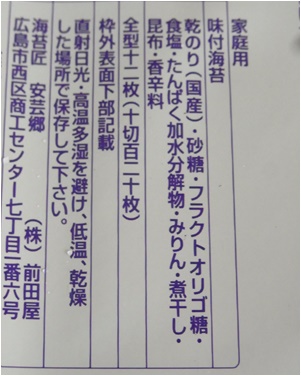 家庭用
味付海苔
乾のり（国産）・砂糖・フラクトオリゴ糖・
食塩・たんぱく加水分解物・みりん・煮干し・
昆布・香辛料
全型十二枚（十切百二十枚）
枠外表面下部記載
直射日光・高温多湿を避け、低温、乾燥
した場所で保存して下さい。
海苔匠　安芸郷
（株）前田屋
広島市西区商工センター七丁目一番六号